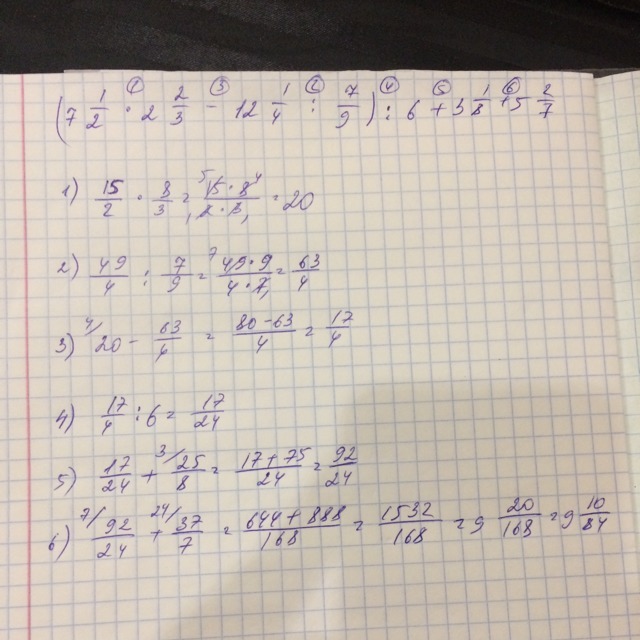 (7 1/2 · 2 2/3 - 12 1/4 : 7/9) : 6 + 3 1/8 + 5 2/7
1) 15/2 · 8/3 = 15·8/2·3 = 20
2) 49/4 : 7/9 = 49·9/4·7 = 63/4
3) 4/ 20 - 63/4 = 80-63/4 = 17/4
4) 17/4 : 6 = 17/24
5) 17/24 + 3/ 25/8 = 17+75/24 = 92/24
6) 7/ 92/24 + 24/ 37/7 = 644+888/168 = 1532/168 = 9 20/168 = 9 10/84